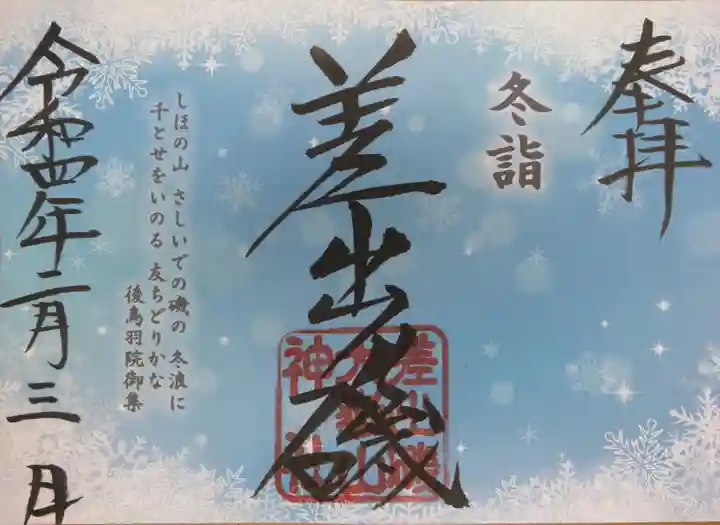 奉拝
冬詣
差出磯
差出磯
大嶽山
神社
しほの山 さしいでの磯の 冬浪に
千とせをいのる 友ちどりかな
後鳥羽院御集
令和四年二月三日